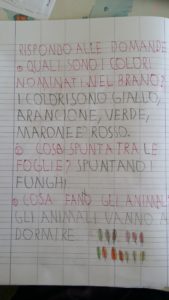 RISPONDO ALLE DOMANDE
QUALI SONO I COLORI
NOMINATI NEL BRANO?
I COLORI SONO GIALLO,
ARANCIONE, VERDE,
MARONE E ROSSO.
COSA SPUNTA TRA LE
FOGLIE? SPUNTANO I
FUNGHI
COSA FANO GLI ANIMAL
GLI ANIMALI VANNO A
DORMIRE